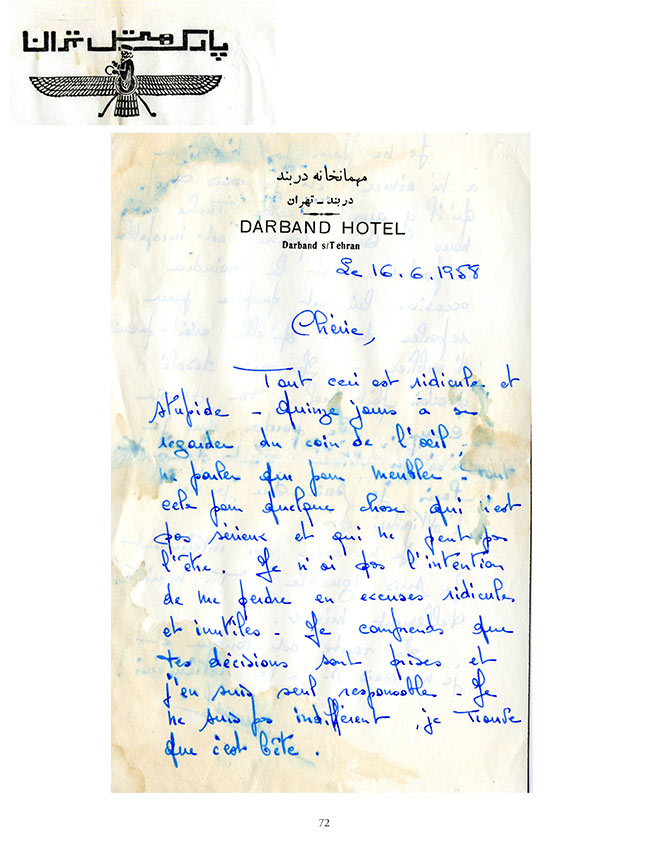 پارک هتل تهران
مهمانخانه دربند
دربند - تهران
DARBAND HOTEL
Darband s/Tehran
Le 16.6.1958
Chérie,
Tout ceci est ridicule et
stupide - Quinze jours à se
regarder du coin de l'œil,
ne parler que pour meubler -
cela pour quelque chose qui n'est
pas sérieux et qui ne peut pas
l'être. Je n'ai pas l'intention
de me perdre en excuses ridicules
et inutiles - Je comprends que
tes décisions sont prises et
j'en suis seul responsable - Je
ne suis pas indifférent, je trouve
que c'est bête.
72